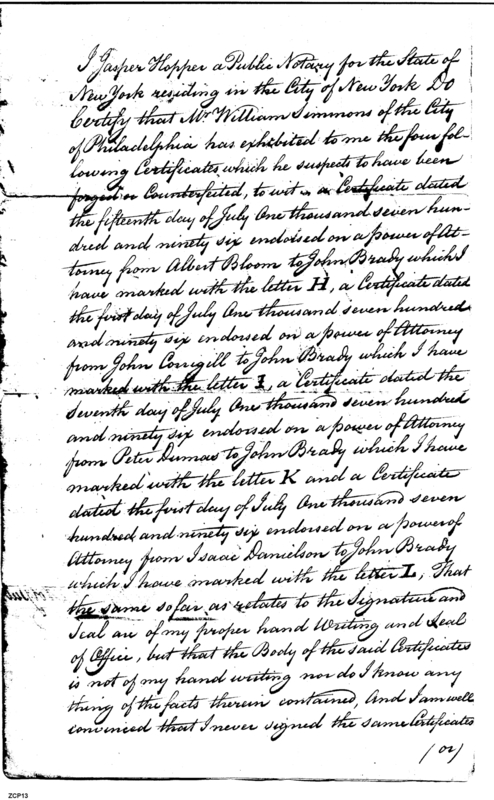 I Jasper Hopper a Public Notary for the State of
New York residing in the City of New York Do
Certify that Mr William Simmons of the City
of Philadelphia has exhibited to me the four fol-
lowing Certificates which he suspects to have been
forged or Counterfeited, to wit a Certificate dated
the fifteenth day of July One thousand seven hun-
dred and ninety six endorsed on a power of At-
torney from Albert Bloom to John Brady which I
have marked with the letter H, a Certificate dated
the first day of July One thousand seven hundred
and ninety six endorsed on a power of Attorney
from John Corrigill to John Brady which I have
marked with the letter I, a Certificate dated the
seventh day of July One thousand seven hundred
and ninety six endorsed on a power of Attorney
from Peter Dumas to John Brady which I have
marked with the letter K and a Certificate
dated the first day of July One thousand seven
hundred and ninety six endorsed on a power of
Attorney from Isaac Danielson to John Brady
which I have marked with the letter L, That
the same so far as relates to the Signature and
Seal are of my proper hand Writing and Seal
of Office, but that the Body of the said Certificates
is not of my hand writing nor do I know any
thing of the facts therein contained, And I am well
convinced that I never signed the same Certificates
(or)
ZCP13